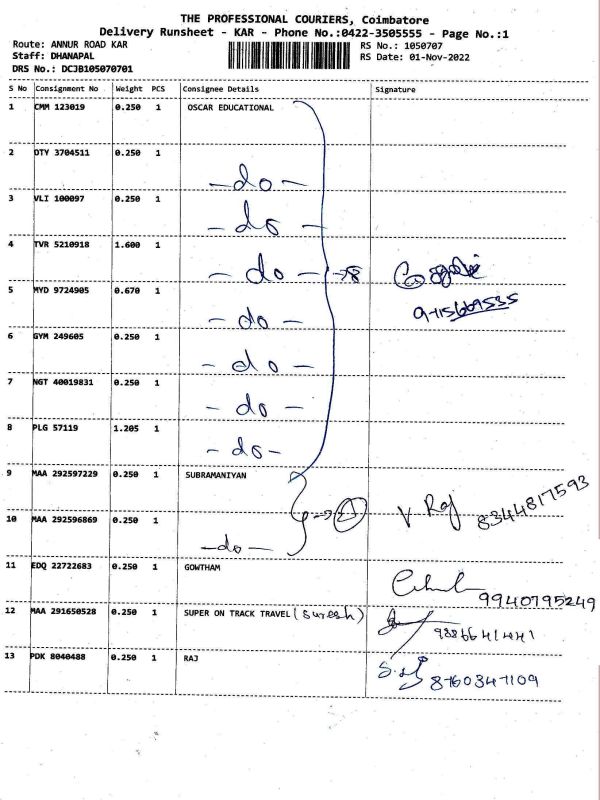 THE PROFESSIONAL COURIERS, Coimbatore
Delivery Runsheet - KAR - Phone No.:0422-3505555 - Page No.:1
Route: ANNUR ROAD KAR
Staff: DHANAPAL
DRS No.: DCJB105070701
RS No.: 1050707
RS Date: 01-Nov-2022
S No Consignment No Weight PCS Consignee Details Signature
1 CMM 123019 0.250 1 OSCAR EDUCATIONAL
2 OTY 3704511 0.250 1
- do -
3 VLI 100097 0.250 1
- do -
4 TVR 5210918 1.600 1
- do - → 8
5 MYD 9724905 0.670 1
9715669535
- do -
6 GYM 249605 0.250 1
- do -
7 NGT 40019831 0.250 1
- do -
8 PLG 57119 1.205 1
- do -
9 MAA 292597229 0.250 1 SUBRAMANIYAN
V Raj 8344817593
10 MAA 292596869 0.250 1
- do -
11 EDQ 22722683 0.250 1 GOWTHAM
9940795249
12 MAA 291650528 0.250 1 SUPER ON TRACK TRAVEL (Suresh)
13 PDK 8040488 0.250 1 RAJ
8760347109